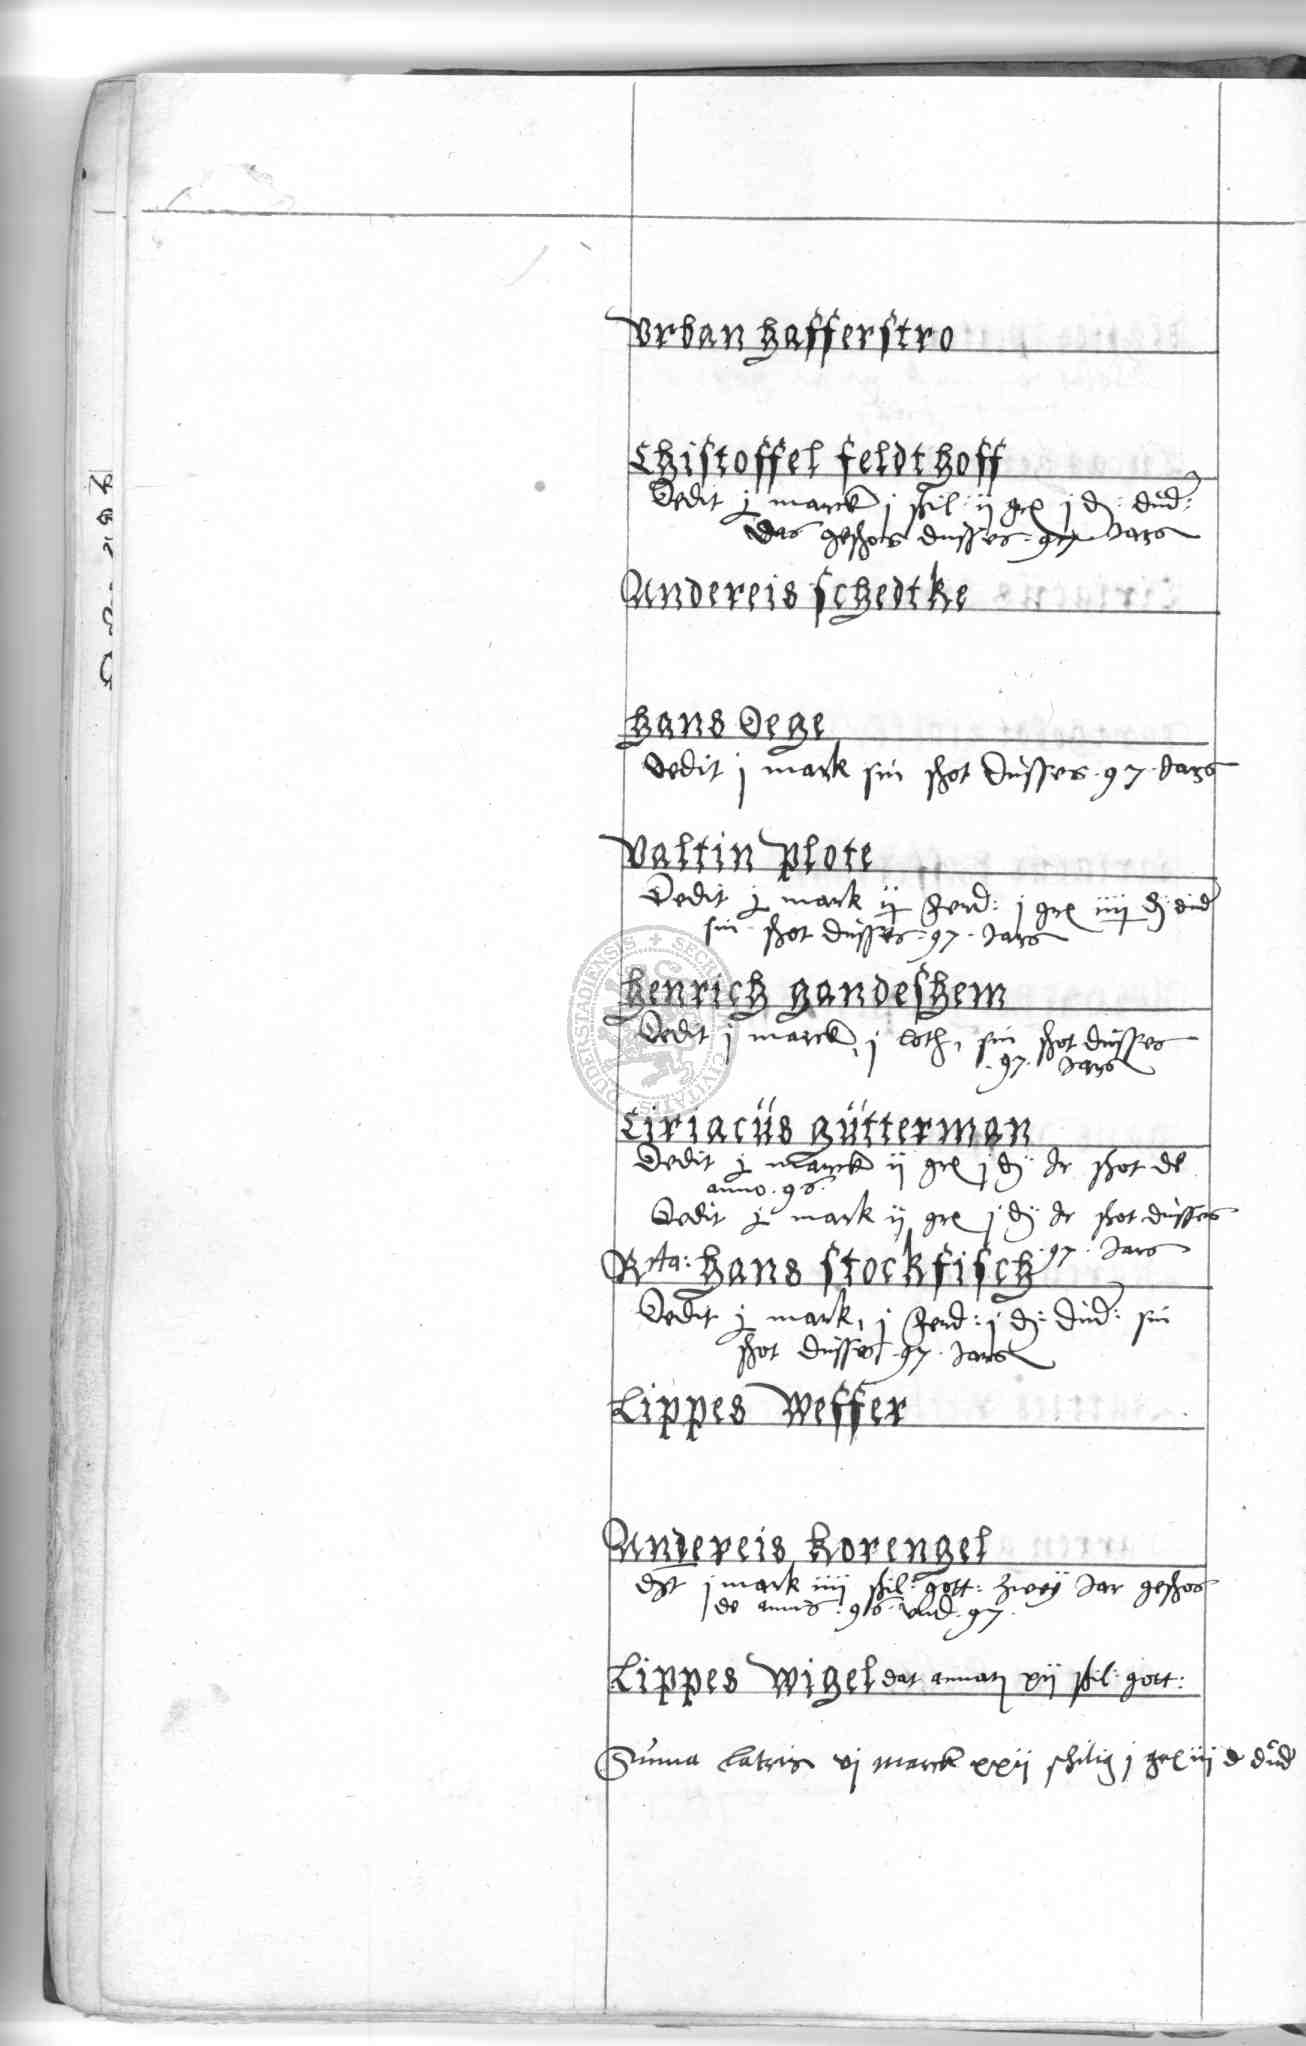 Urban Hafferstro
Chistoffel Feldthoff
Dedit j marck j shil: ij gr j d: dud:
des geschos dusses 97 Jars
Andereis Schedtke
Hans Dege
Dedit j mark sin shot dusses 97 Jars
Valtin Plote
Dedit j mark ij ferd: j gr iiij d dud
sin shot dusses 97 Jars
Henrich Gandeshem
Dedit j marck, j loth, sin shot dusses
97 Jars
Ciriacüs Gütterman
Dedit j marck ij gr j d Ir shot de
anno 96
Dedit j mark ij gr j d Ir shot dusses
97 Jars
Rta: Hans Stockfisch
Dedit j mark, j ferd: j d: dud: sin
shot dusses 97 Jars
Lippes Weffer
Andereis Korengel
dt j mark iiij shil: gott: zweÿ Jar geschos
de annis 96 vnd 97
Lippes Wigel dat annatj xij shil: gott:
Suma lateris vj marck xxij shilig j gr iij d dud
SECRE CIVITATIS DUDERSTADIENSIS